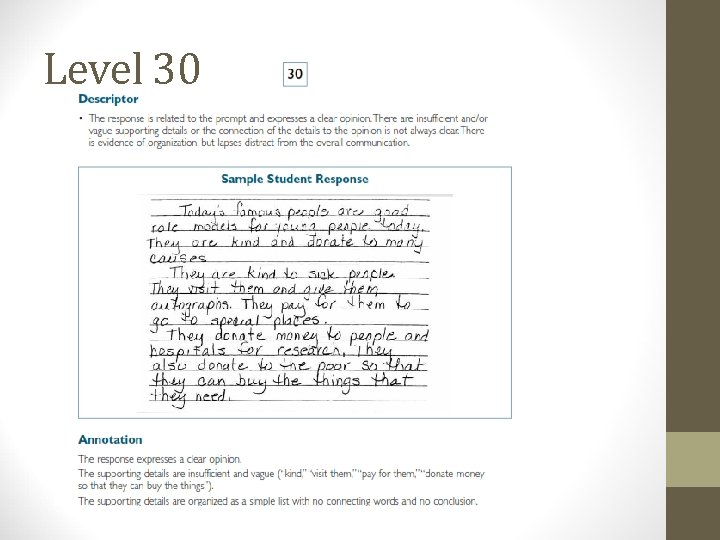 Level 30
30
Descriptor
• The response is related to the prompt and expresses a clear opinion. There are insufficient and/or
vague supporting details or the connection of the details to the opinion is not always clear. There
is evidence of organization but lapses distract from the overall communication.
Sample Student Response
Today's famous people are good
role models for young people today.
They are kind and donate to many
causes
They are kind to sick people.
They visit them and give them
autographs. They pay for them to
go to special places.
They donate money to people and
hospitals for research. They
also donate to the poor so that
they can buy the things that
they need.
Annotation
The response expresses a clear opinion.
The supporting details are insufficient and vague ("kind," "visit them," "pay for them," "donate money
so that they can buy the things").
The supporting details are organized as a simple list with no connecting words and no conclusion.